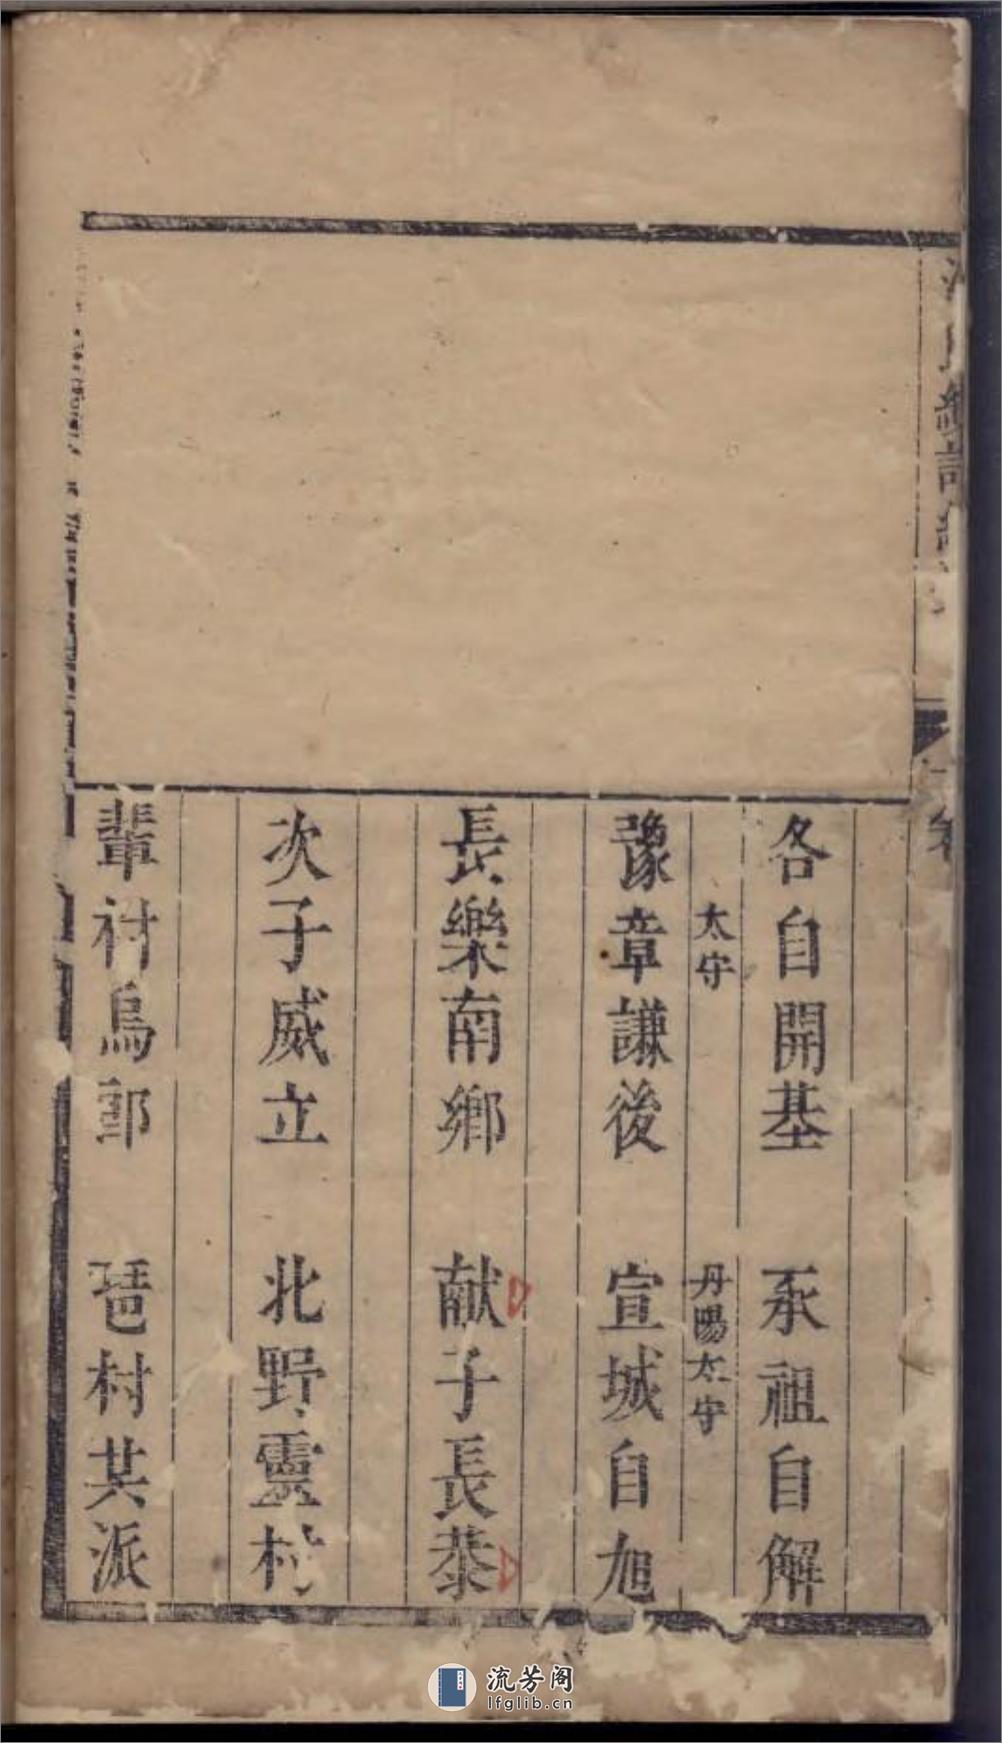 各自開基　承祖自解
太守　丹陽太守
豫章謙後　宣城自旭
長樂南鄉　献子長恭
次子威立　北野靈村
輩村烏郭　琶村其派
流芳阁
lfglib.cn